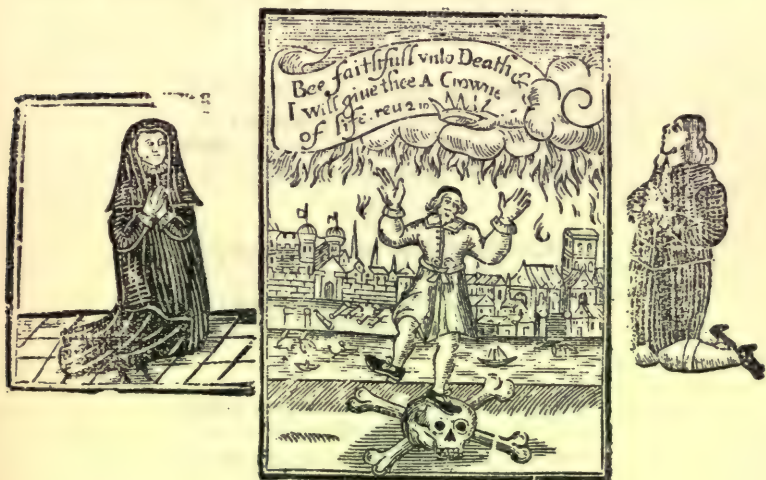 Bee faithfull vnto Death &
I will giue thee A Crowne
of life. reu 2 10